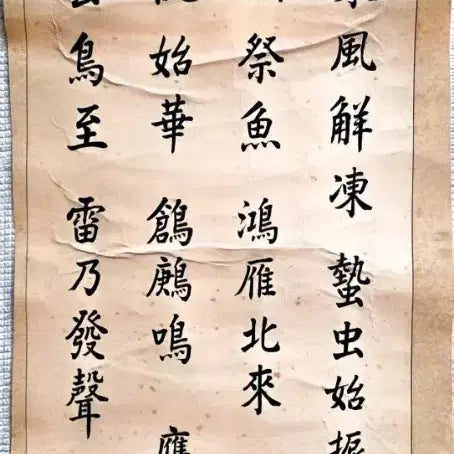 風觧凍 蟄虫始振
祭魚 鴻雁北來
始華 鶬鶊鳴 鷹
鳥至 雷乃發聲